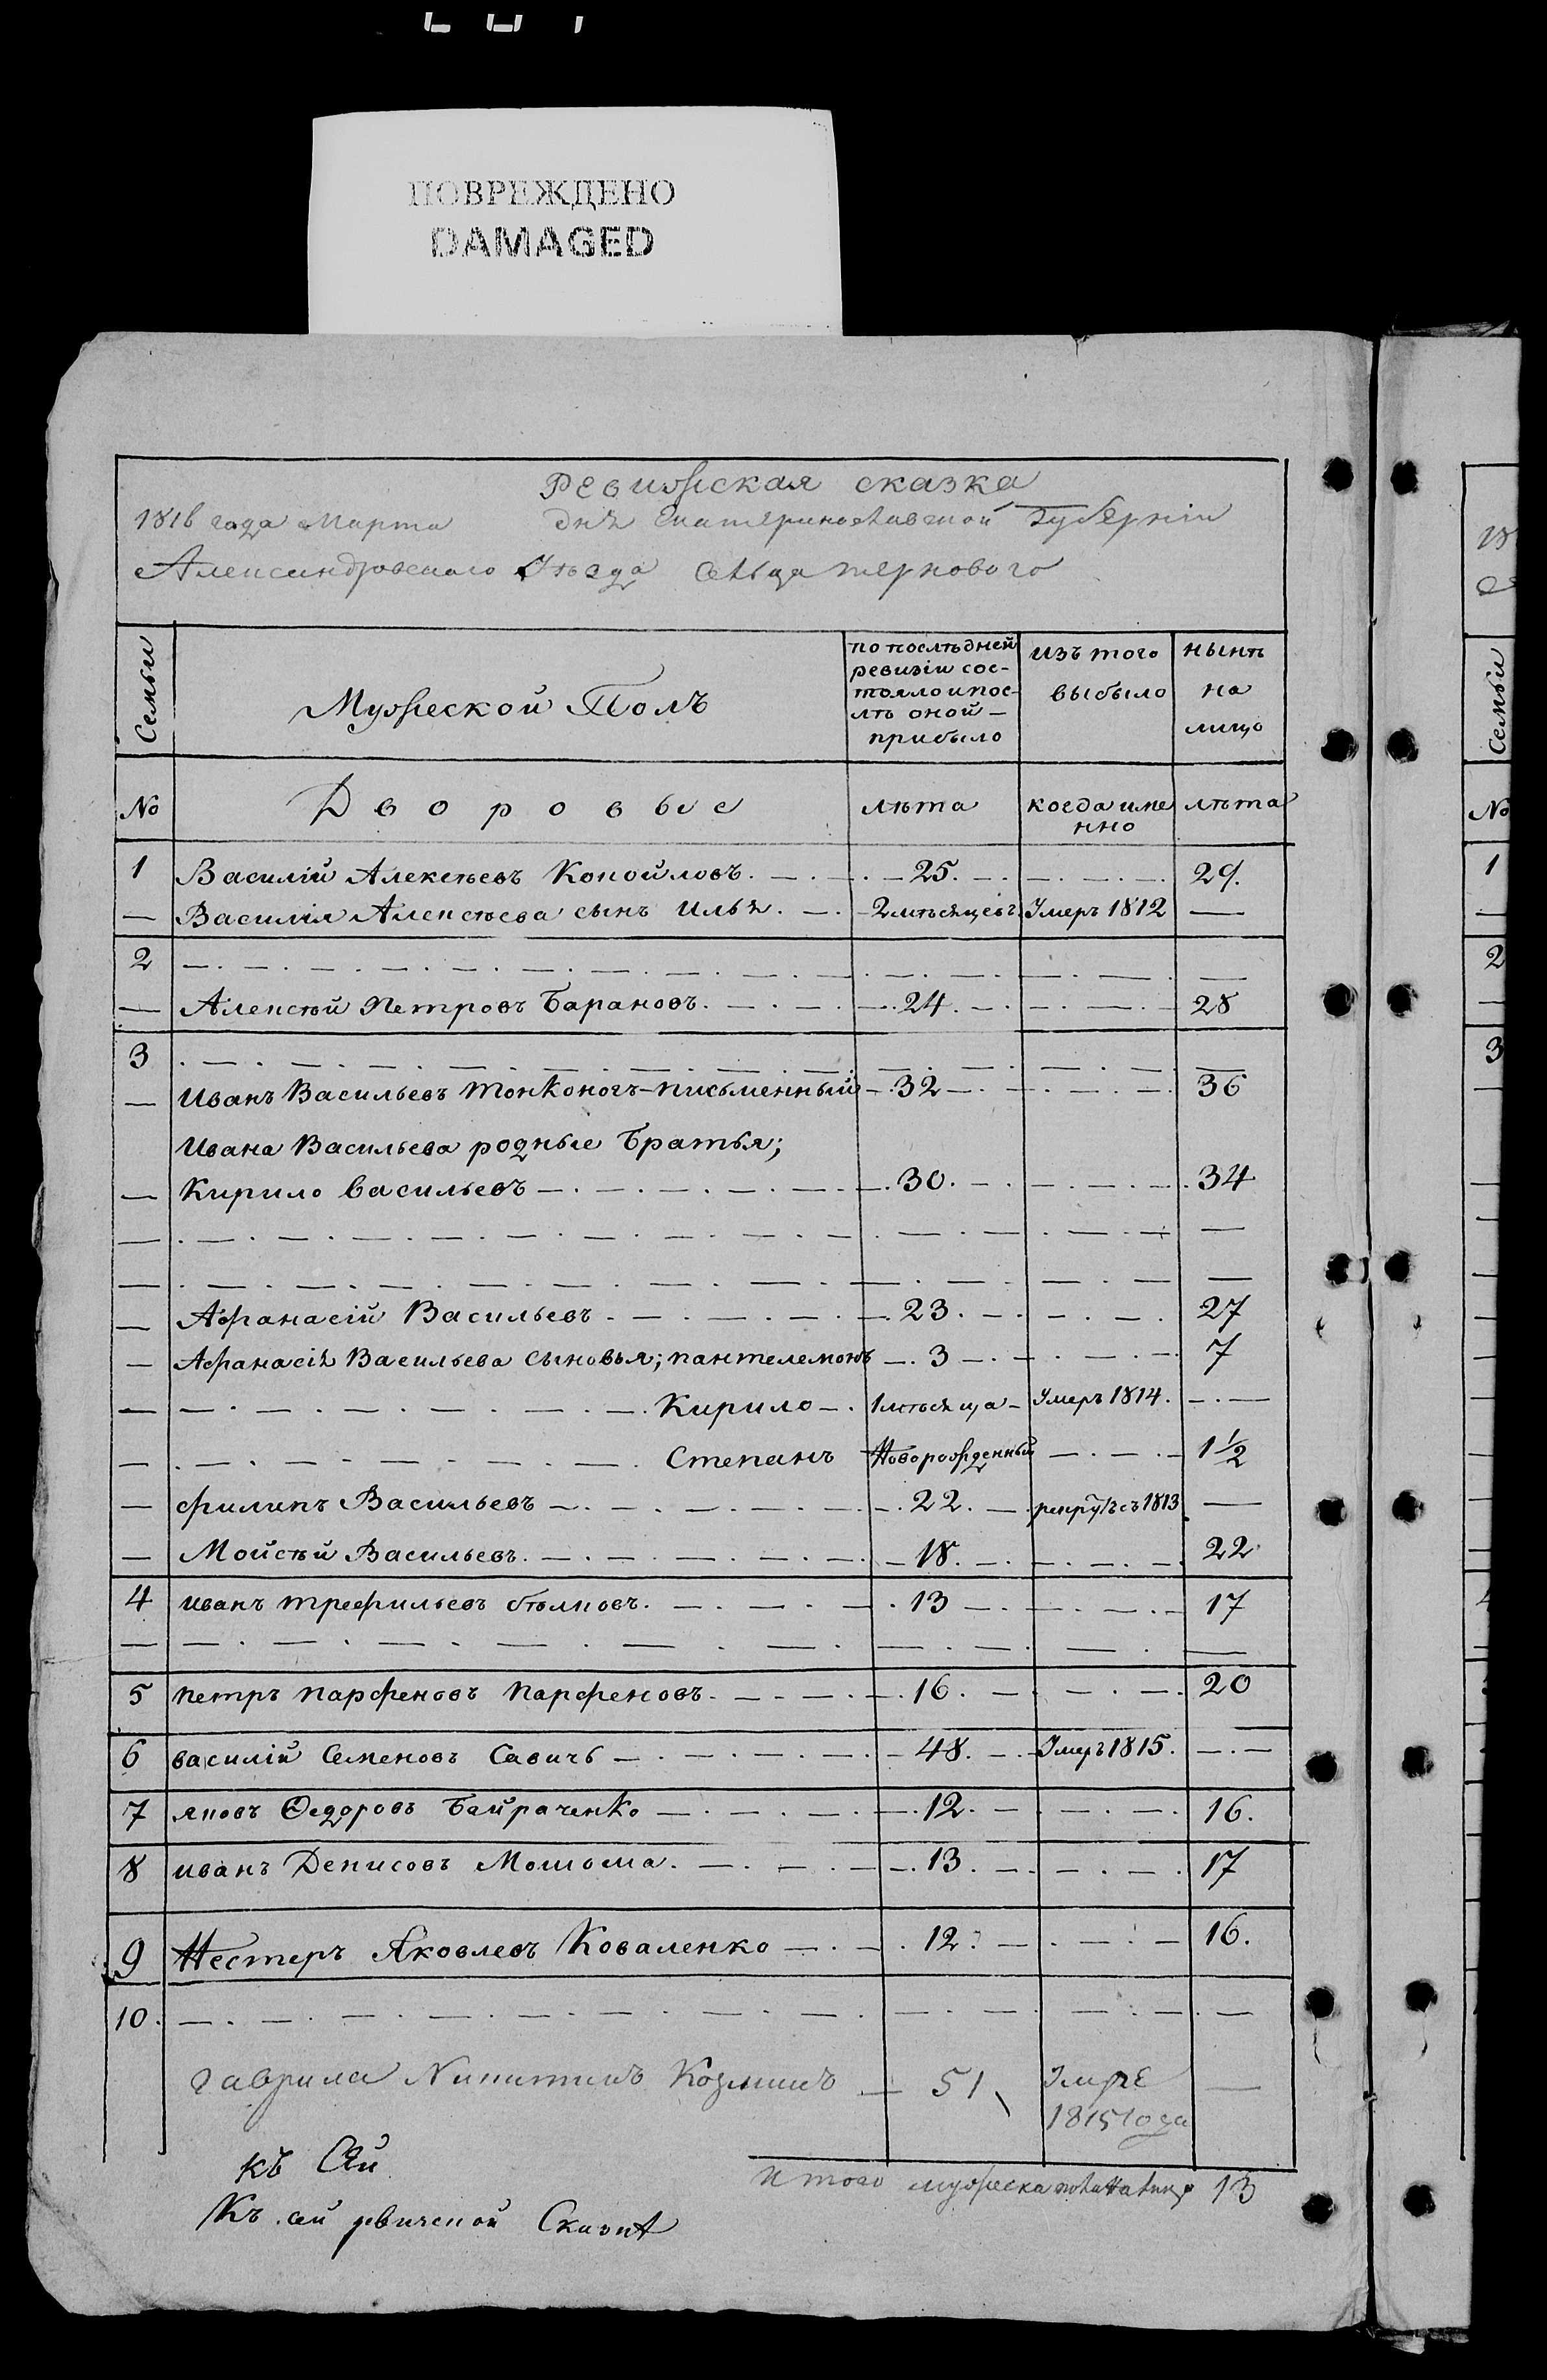 ПОВРЕЖДЕНО
DAMAGED
Ревижская сказка
1816 года Марта дня Екатеринославской Губерніи
Александровскаго Уѣзда Сельца тернового
Семьи
Мужеской Полъ
по послѣдней
ревизіи сос-
тояло и пос-
лѣ оной —
прибыло
изъ того
выбыло
нынѣ
на
лицо
№ Дворовые лѣта когда име лѣта
нно
1 Василій Алексѣевъ Копойловъ 25. 29.
Василія Алексѣева сынъ Илья 2 мѣсяцевъ Умеръ 1812 —
2
Алексѣй Петровъ Барановъ 24. 28
3
Иванъ Васильевъ Тонконогъ-письменный 32 36
Ивана Васильева родные Братья;
Кирило васильевъ 30. 34
Афанасій Васильевъ 23. 27
Афанасія Васильева сыновья; пантелемонъ 3 7
Кирило 1 мѣсяца Умеръ 1814.
Степанъ Новорожденный 1½
филипъ Васильевъ 22. 1813 —
Мойсѣй Васильевъ. 18. 22
4 иванъ трефильевъ 13 17
5 петръ парфеновъ парфеновъ. 16. 20
6 василій Семеновъ Савичъ 48. Умеръ 1815.
7 яковъ Ѳедоровъ Байраченко 12. 16.
8 иванъ Денисовъ 13. 17
9 Нестеръ Яковлевъ Коваленко 12. 16.
10.
гаврила Никитинъ Козминъ 51 Умре —
1815 года
Итого мужеска пола на лицо 13
къ Сей
Къ сей Сказкѣ
18
Семьи
№
1
2
3